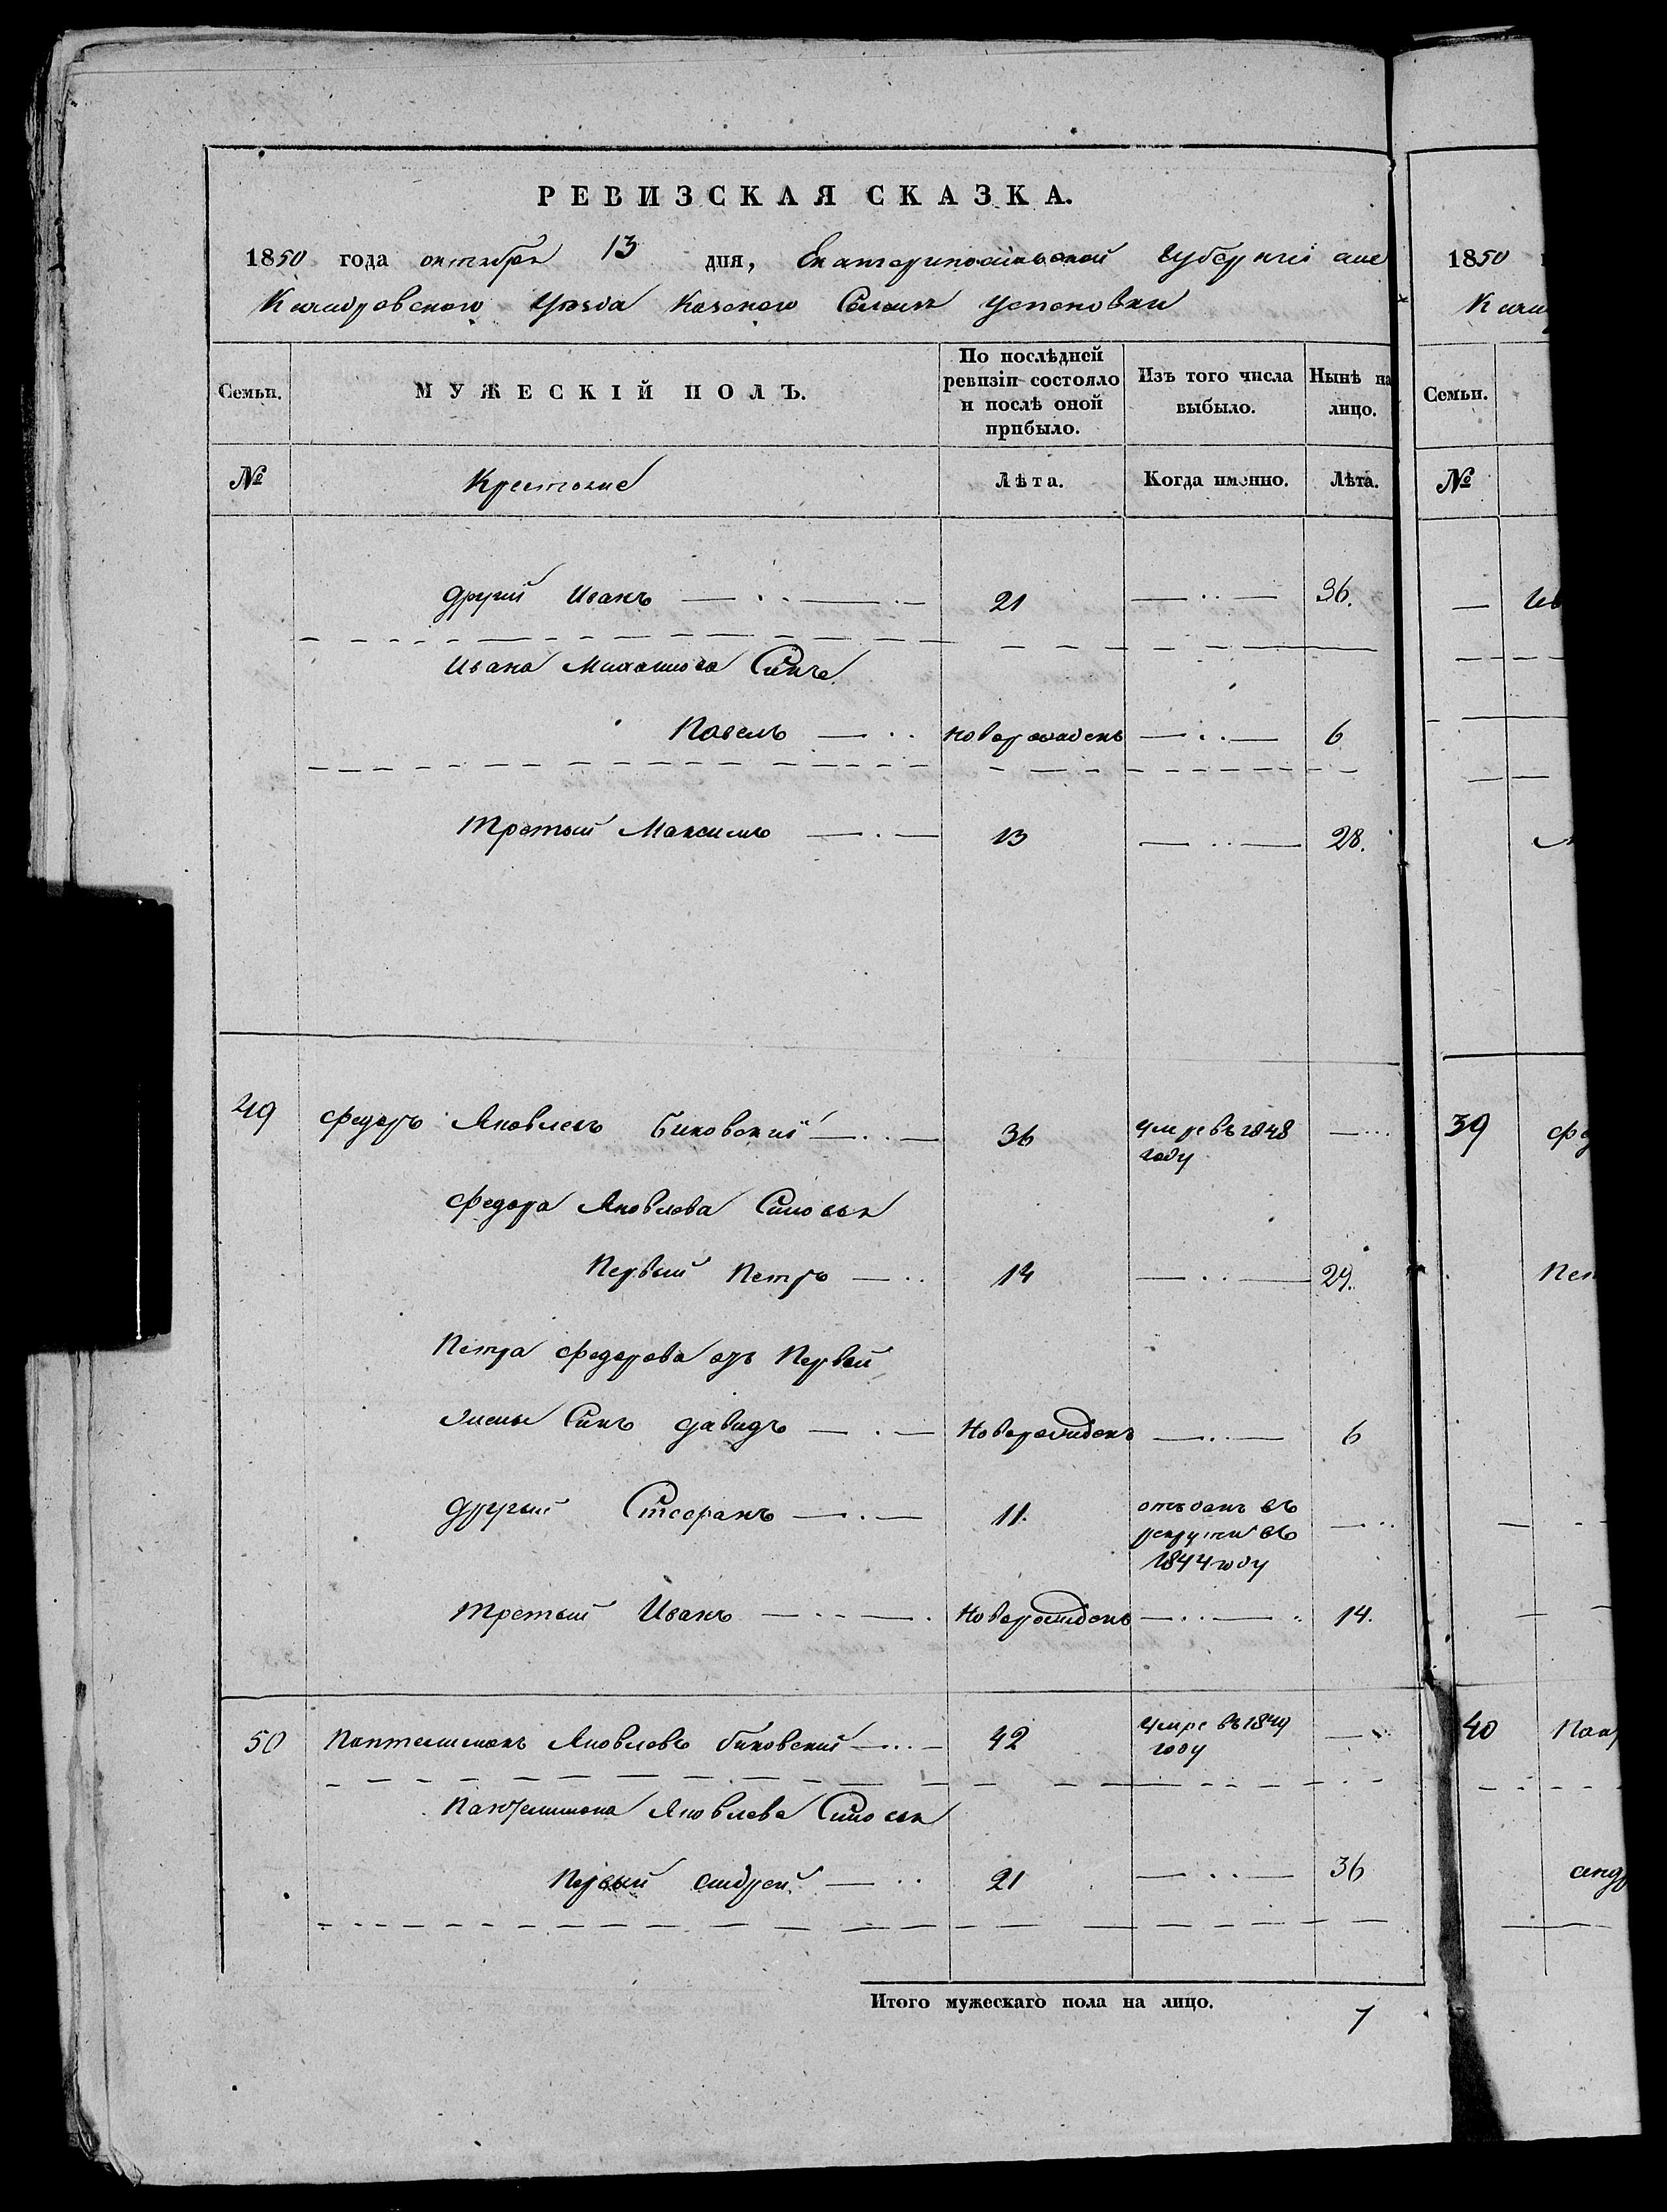 РЕВИЗСКАЯ СКАЗКА.
1850 года октября 13 дня, Екатеринославской Губернии Але
Казенного Селения Успеновки
Уезда
Семьи.
МУЖЕСКІЙ ПОЛЪ.
По послѣдней ревизіи состояло и послѣ оной прибыло.
Изъ того числа выбыло.
Нынѣ на лицо.
№
Крестяне
Лѣта.
Когда именно.
Лѣта.
другий Иванъ 21 36.
Ивана Михайлова Синъ
Павелъ новорожденъ 6
Третый Максимъ 13 28.
49 Федоръ Яковлевъ Биковский 36 умре въ 1848 году
Федора Яковлева Синовья
Первый Петръ 14 29.
Петра Федорова отъ Первой
Жены Синъ Давидъ Новорожденъ 6
другый Стефанъ 11. отъданъ въ рекрути въ 1844 году
Третый Иванъ Новорожденъ 14.
50 Пантелимонъ Яковлевъ Биковский 42 умре въ 1849 году
Пантелимона Яковлева Синовья
Первый Андрей 21 36
Итого мужескаго пола на лицо. 7
1850
Семьи.
№
39
Пет
40
Андр